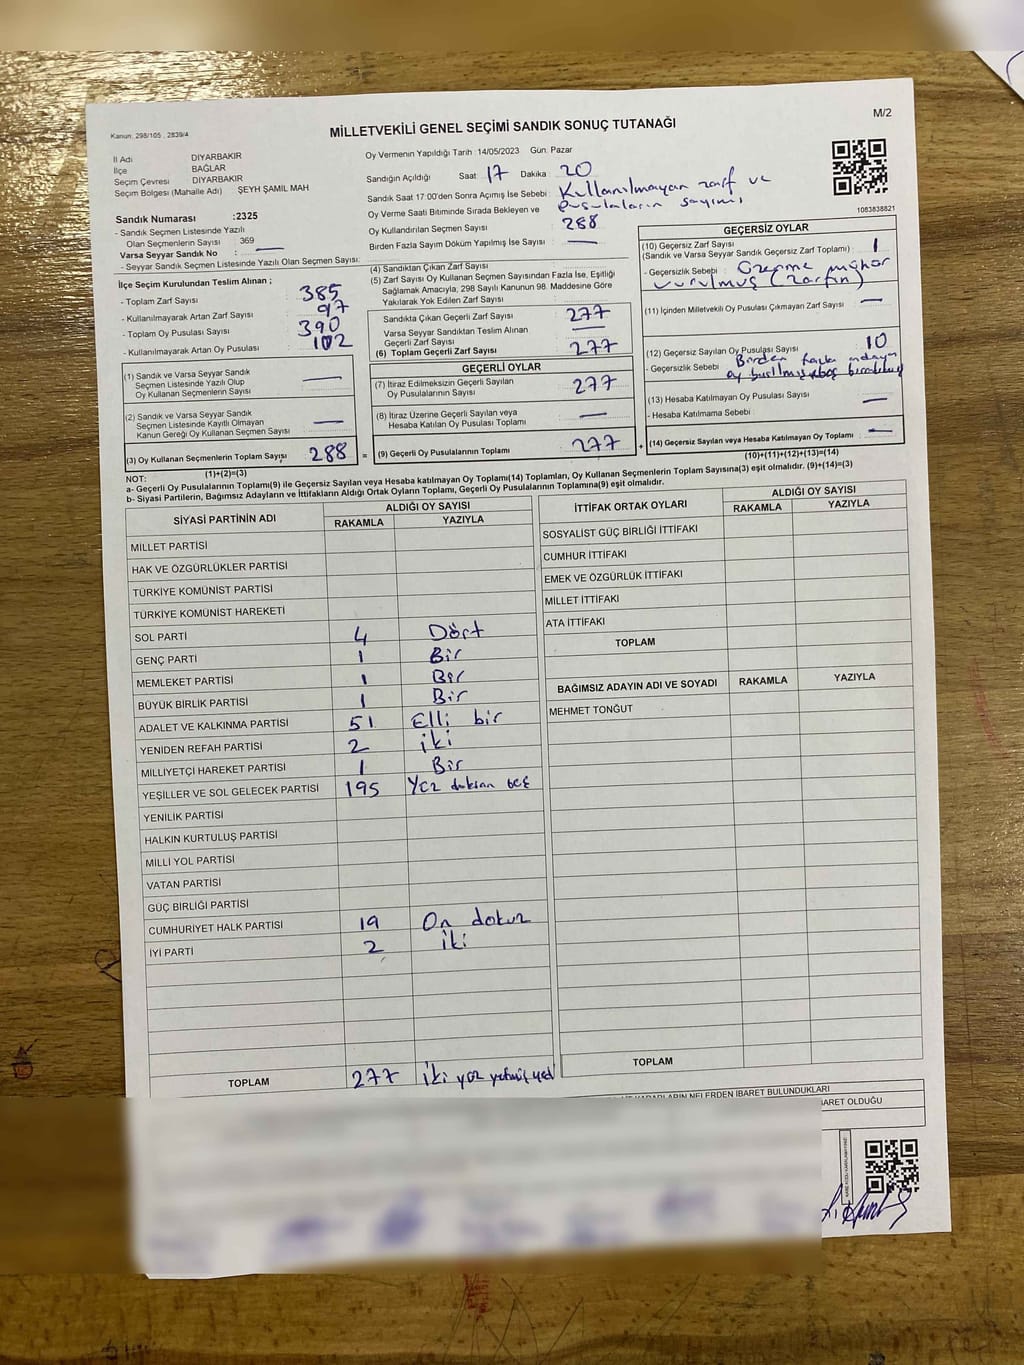 Kanun: 298/105 , 2839/4
MİLLETVEKİLİ GENEL SEÇİMİ SANDIK SONUÇ TUTANAĞI
M/2
İl Adı DİYARBAKIR
İlçe BAĞLAR
Seçim Çevresi DİYARBAKIR
Seçim Bölgesi (Mahalle Adı) : ŞEYH ŞAMİL MAH
Sandık Numarası :2325
- Sandık Seçmen Listesinde Yazılı
Olan Seçmenlerin Sayısı : 369
Varsa Seyyar Sandık No : —
- Seyyar Sandık Seçmen Listesinde Yazılı Olan Seçmen Sayısı:
Oy Vermenin Yapıldığı Tarih : 14/05/2023 Gün: Pazar
Sandığın Açıldığı Saat 17 Dakika : 20
Sandık Saat 17 00'den Sonra Açımış İse Sebebi : Kullanılmayan zarf ve
pusulaların sayımı
Oy Verme Saati Bitiminde Sırada Bekleyen ve
Oy Kullandırılan Seçmen Sayısı : 288
Birden Fazla Sayım Döküm Yapılmış İse Sayısı : —
1063838821
İlçe Seçim Kurulundan Teslim Alınan ;
- Toplam Zarf Sayısı : 385
- Kullanılmayarak Artan Zarf Sayısı : 97
- Toplam Oy Pusulası Sayısı : 390
- Kullanılmayarak Artan Oy Pusulası : 102
(1) Sandık ve Varsa Seyyar Sandık
Seçmen Listesinde Yazılı Olup
Oy Kullanan Seçmenlerin Sayısı —
(2) Sandık ve Varsa Seyyar Sandık
Seçmen Listesinde Kayıtlı Olmayan
Kanun Gereği Oy Kullanan Seçmen Sayısı —
(3) Oy Kullanan Seçmenlerin Toplam Sayısı : 288
(1)+(2)=(3)
(4) Sandıktan Çıkan Zarf Sayısı :
(5) Zarf Sayısı Oy Kullanan Seçmen Sayısından Fazla İse, Eşitliği
Sağlamak Amacıyla; 298 Sayılı Kanunun 98. Maddesine Göre
Yakılarak Yok Edilen Zarf Sayısı :
Sandıkta Çıkan Geçerli Zarf Sayısı : 277
Varsa Seyyar Sandıktan Teslim Alınan
Geçerli Zarf Sayısı : —
(6) Toplam Geçerli Zarf Sayısı : 277
GEÇERLİ OYLAR
(7) İtiraz Edilmeksizin Geçerli Sayılan
Oy Pusulalarının Sayısı : 277
(8) İtiraz Üzerine Geçerli Sayılan veya
Hesaba Katılan Oy Pusulası Toplamı : —
= (9) Geçerli Oy Pusulalarının Toplamı : 277 +
GEÇERSİZ OYLAR
(10) Geçersiz Zarf Sayısı
(Sandık ve Varsa Seyyar Sandık Geçersiz Zarf Toplamı) : 1
- Geçersizlik Sebebi : Üzerine mühür
vurulmuş (zarfın)
(11) İçinden Milletvekili Oy Pusulası Çıkmayan Zarf Sayısı : —
(12) Geçersiz Sayılan Oy Pusulası Sayısı : 10
- Geçersizlik Sebebi : Birden fazla adaya
oy
(13) Hesaba Katılmayan Oy Pusulası Sayısı : —
- Hesaba Katılmama Sebebi :
(14) Geçersiz Sayılan veya Hesaba Katılmayan Oy Toplamı : —
(10)+(11)+(12)+(13)=(14)
NOT:
a- Geçerli Oy Pusulalarının Toplamı(9) ile Geçersiz Sayılan veya Hesaba katılmayan Oy Toplamı(14) Toplamları, Oy Kullanan Seçmenlerin Toplam Sayısına(3) eşit olmalıdır. (9)+(14)=(3)
b- Siyasi Partilerin, Bağımsız Adayların ve İttifakların Aldığı Ortak Oyların Toplamı, Geçerli Oy Pusulalarının Toplamına(9) eşit olmalıdır.
SİYASİ PARTİNİN ADI ALDIĞI OY SAYISI
RAKAMLA YAZIYLA
MİLLET PARTİSİ
HAK VE ÖZGÜRLÜKLER PARTİSİ
TÜRKİYE KOMÜNİST PARTİSİ
TÜRKİYE KOMÜNİST HAREKETİ
SOL PARTİ 4 Dört
GENÇ PARTİ 1 Bir
MEMLEKET PARTİSİ 1 Bir
BÜYÜK BİRLİK PARTİSİ 1 Bir
ADALET VE KALKINMA PARTİSİ 51 Elli bir
YENİDEN REFAH PARTİSİ 2 iki
MİLLİYETÇİ HAREKET PARTİSİ 1 Bir
YEŞİLLER VE SOL GELECEK PARTİSİ 195 Yüz doksan beş
YENİLİK PARTİSİ
HALKIN KURTULUŞ PARTİSİ
MİLLİ YOL PARTİSİ
VATAN PARTİSİ
GÜÇ BİRLİĞİ PARTİSİ
CUMHURİYET HALK PARTİSİ 19 On dokuz
İYİ PARTİ 2 iki
TOPLAM 277 iki yüz yetmiş yedi
İTTİFAK ORTAK OYLARI ALDIĞI OY SAYISI
RAKAMLA YAZIYLA
SOSYALİST GÜÇ BİRLİĞİ İTTİFAKI
CUMHUR İTTİFAKI
EMEK VE ÖZGÜRLÜK İTTİFAKI
MİLLET İTTİFAKI
ATA İTTİFAKI
TOPLAM
BAĞIMSIZ ADAYIN ADI VE SOYADI RAKAMLA YAZIYLA
MEHMET TONĞUT
TOPLAM
NELERDEN İBARET BULUNDUKLARI
OLDUĞU